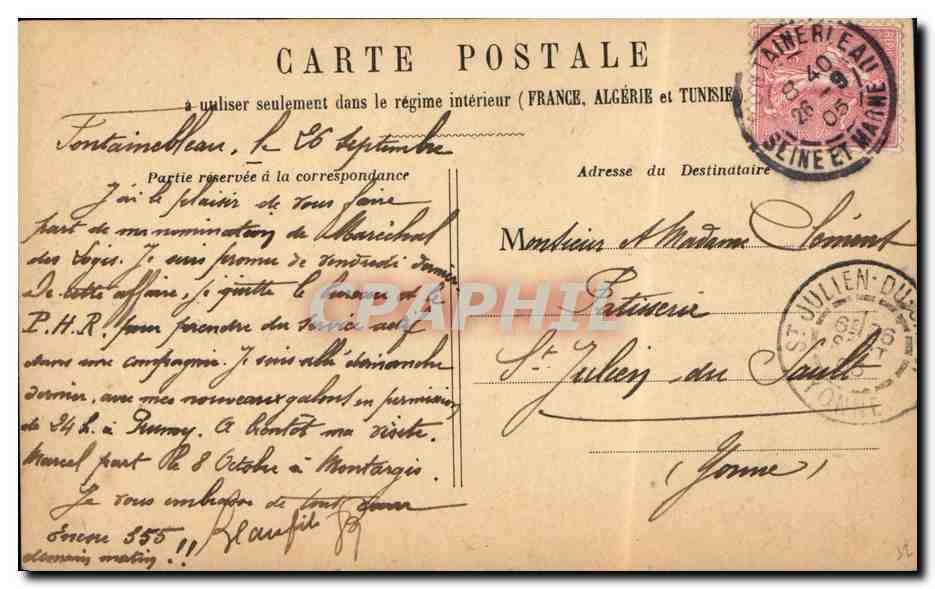 CARTE POSTALE
à utiliser seulement dans le régime intérieur (FRANCE, ALGÉRIE et TUNISIE)
Fontainebleau, le 26 Septembre
Partie réservée à la correspondance
J'ai le plaisir de vous faire
part de ma nomination de Maréchal
des Logis. Je suis promu de vendredi dernier
De cette affaire, je quitte le bureau de le
P.H.R. pour prendre du service actif
dans une compagnie. Je suis allé dimanche
dernier, avec mes nouveaux galons en permission
de 24 h. à Prunoy. A bientôt ma visite.
Marcel part le 8 Octobre à Montargis
Je vous embrasse de tout coeur
Encore 355
demain matin!!
Adresse du Destinataire
Monsieur et Madame Clément
Patisserie
St Julien du Sault
(Yonne)
FONTAINEBLEAU
8 40
26 -9
05
SEINE ET MARNE
ST JULIEN-DU-
YONNE
CPAPHIL